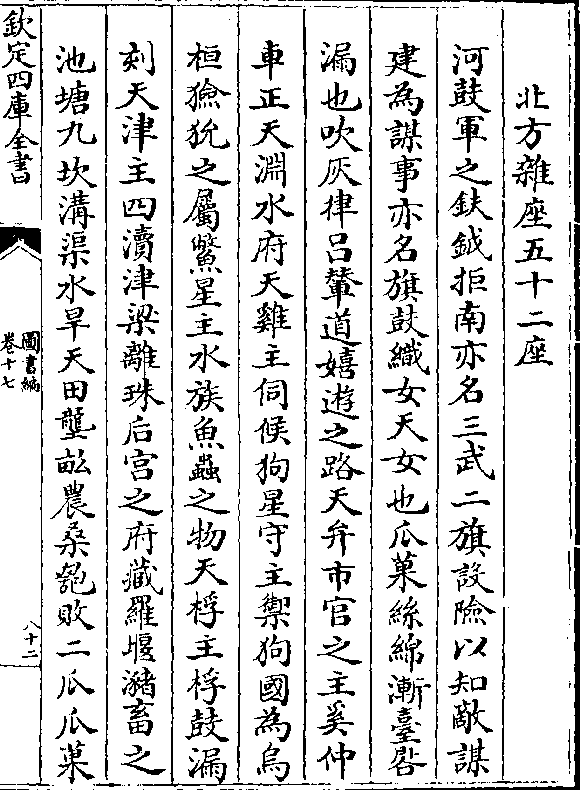 北方雜座五十二座
河鼓軍之鈇鉞拒南亦名三武二旗設險以知敵謀
建為謀事亦名旗鼓織女天女也瓜菓絲綿漸臺晷
漏也吹灰律吕輦道嬉遊之路天弁市官之主奚仲
車正天淵水府天雞主伺候狗星守主禦狗國為烏
桓獫狁之屬鱉星主水族魚蟲之物天桴主桴鼓漏
刻天津主四瀆津梁離珠后宫之府藏羅堰瀦畜之
池塘九坎溝渠水旱天田壟畆農桑匏敗二瓜瓜菓
欽定四庫全書
圖書編
卷十七
八十二